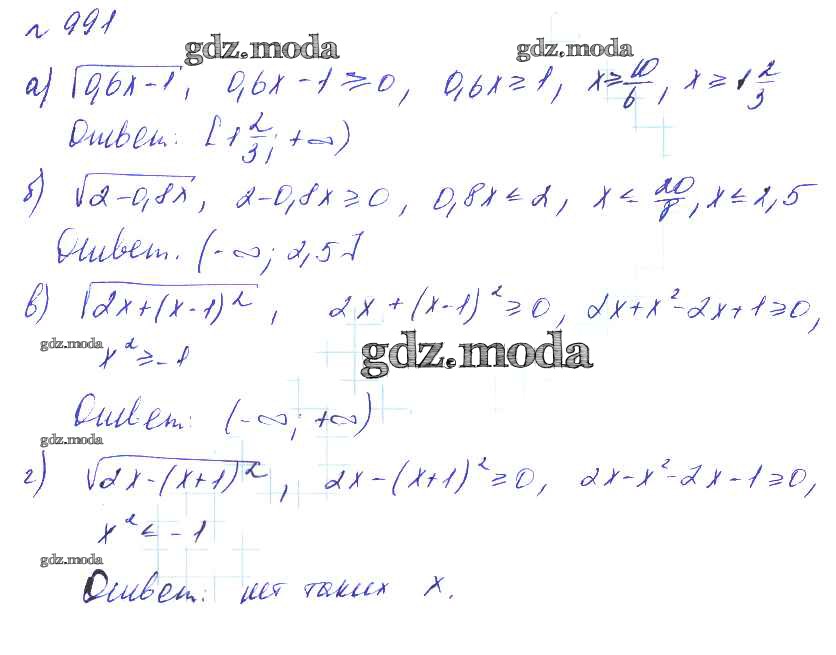 № 991
gdz.moda gdz.moda
а) √(0,6x-1), 0,6x-1≥0, 0,6x≥1, x≥10/6, x≥1 2/3
Ответ: [1 2/3; +∞)
б) √(2-0,8x), 2-0,8x≥0, 0,8x≤2, x≤20/8, x≤2,5
Ответ. (-∞; 2,5]
в) √(2x+(x-1)²), 2x+(x-1)²≥0, 2x+x²-2x+1≥0,
gdz.moda gdz.moda
x²≥-1
Ответ: (-∞; +∞)
gdz.moda
г) √(2x-(x+1)²), 2x-(x+1)²≥0, 2x-x²-2x-1≥0,
x²≤-1
gdz.moda
Ответ: нет таких x.